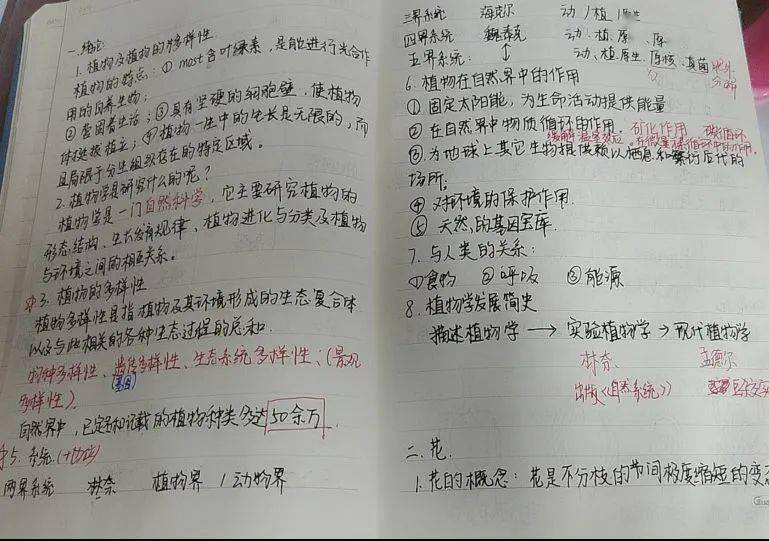 一. 绪论
1. 植物及植物的多样性
植物的特点: ① most含叶绿素, 是能进行光合作
用的自养生物;
②营固着生活; ③具有坚硬的细胞壁, 使植物
体挺拔直立; ④植物一生中的生长是无限的, 而
且局限于分生组织存在的特定区域。
2. 植物学是研究什么的呢?
植物学是一门自然科学, 它主要研究植物的
形态结构、生长发育规律、植物进化与分类及植物
与环境之间的相互关系。
3. 植物的多样性
植物多样性是指植物及其环境形成的生态复合体
以及与此相关的各种生态过程的总和.
物种多样性、遗传多样性、生态系统多样性、(景观
(基因)
多样性).
自然界中, 已定名和记载的植物种类多达50余万.
5. 系统.
两界系统 林奈 植物界 / 动物界
三界系统 海克尔 动 / 植 / 原生
四界系统 魏泰克 动. 植. 原. 原
五界系统: ↕ 动、植、原生. 原核. 真菌
6. 植物在自然界中的作用
① 固定太阳能, 为生命活动提供能量
② 在自然界中物质循环的作用. 矿化作用 碳循环
③. 为地球上其它生物提供赖以栖息和繁衍后代的
场所.
④ 对环境的保护作用.
⑤ 天然的基因宝库.
7. 与人类的关系:
①食物 ②呼吸 ③能源
8. 植物学发展简史
描述植物学 → 实验植物学 → 现代植物学
林奈 孟德尔
出版《自然系统》 豆杂交
二. 花.
1. 花的概念: 花是不分枝的节间极度缩短的变态